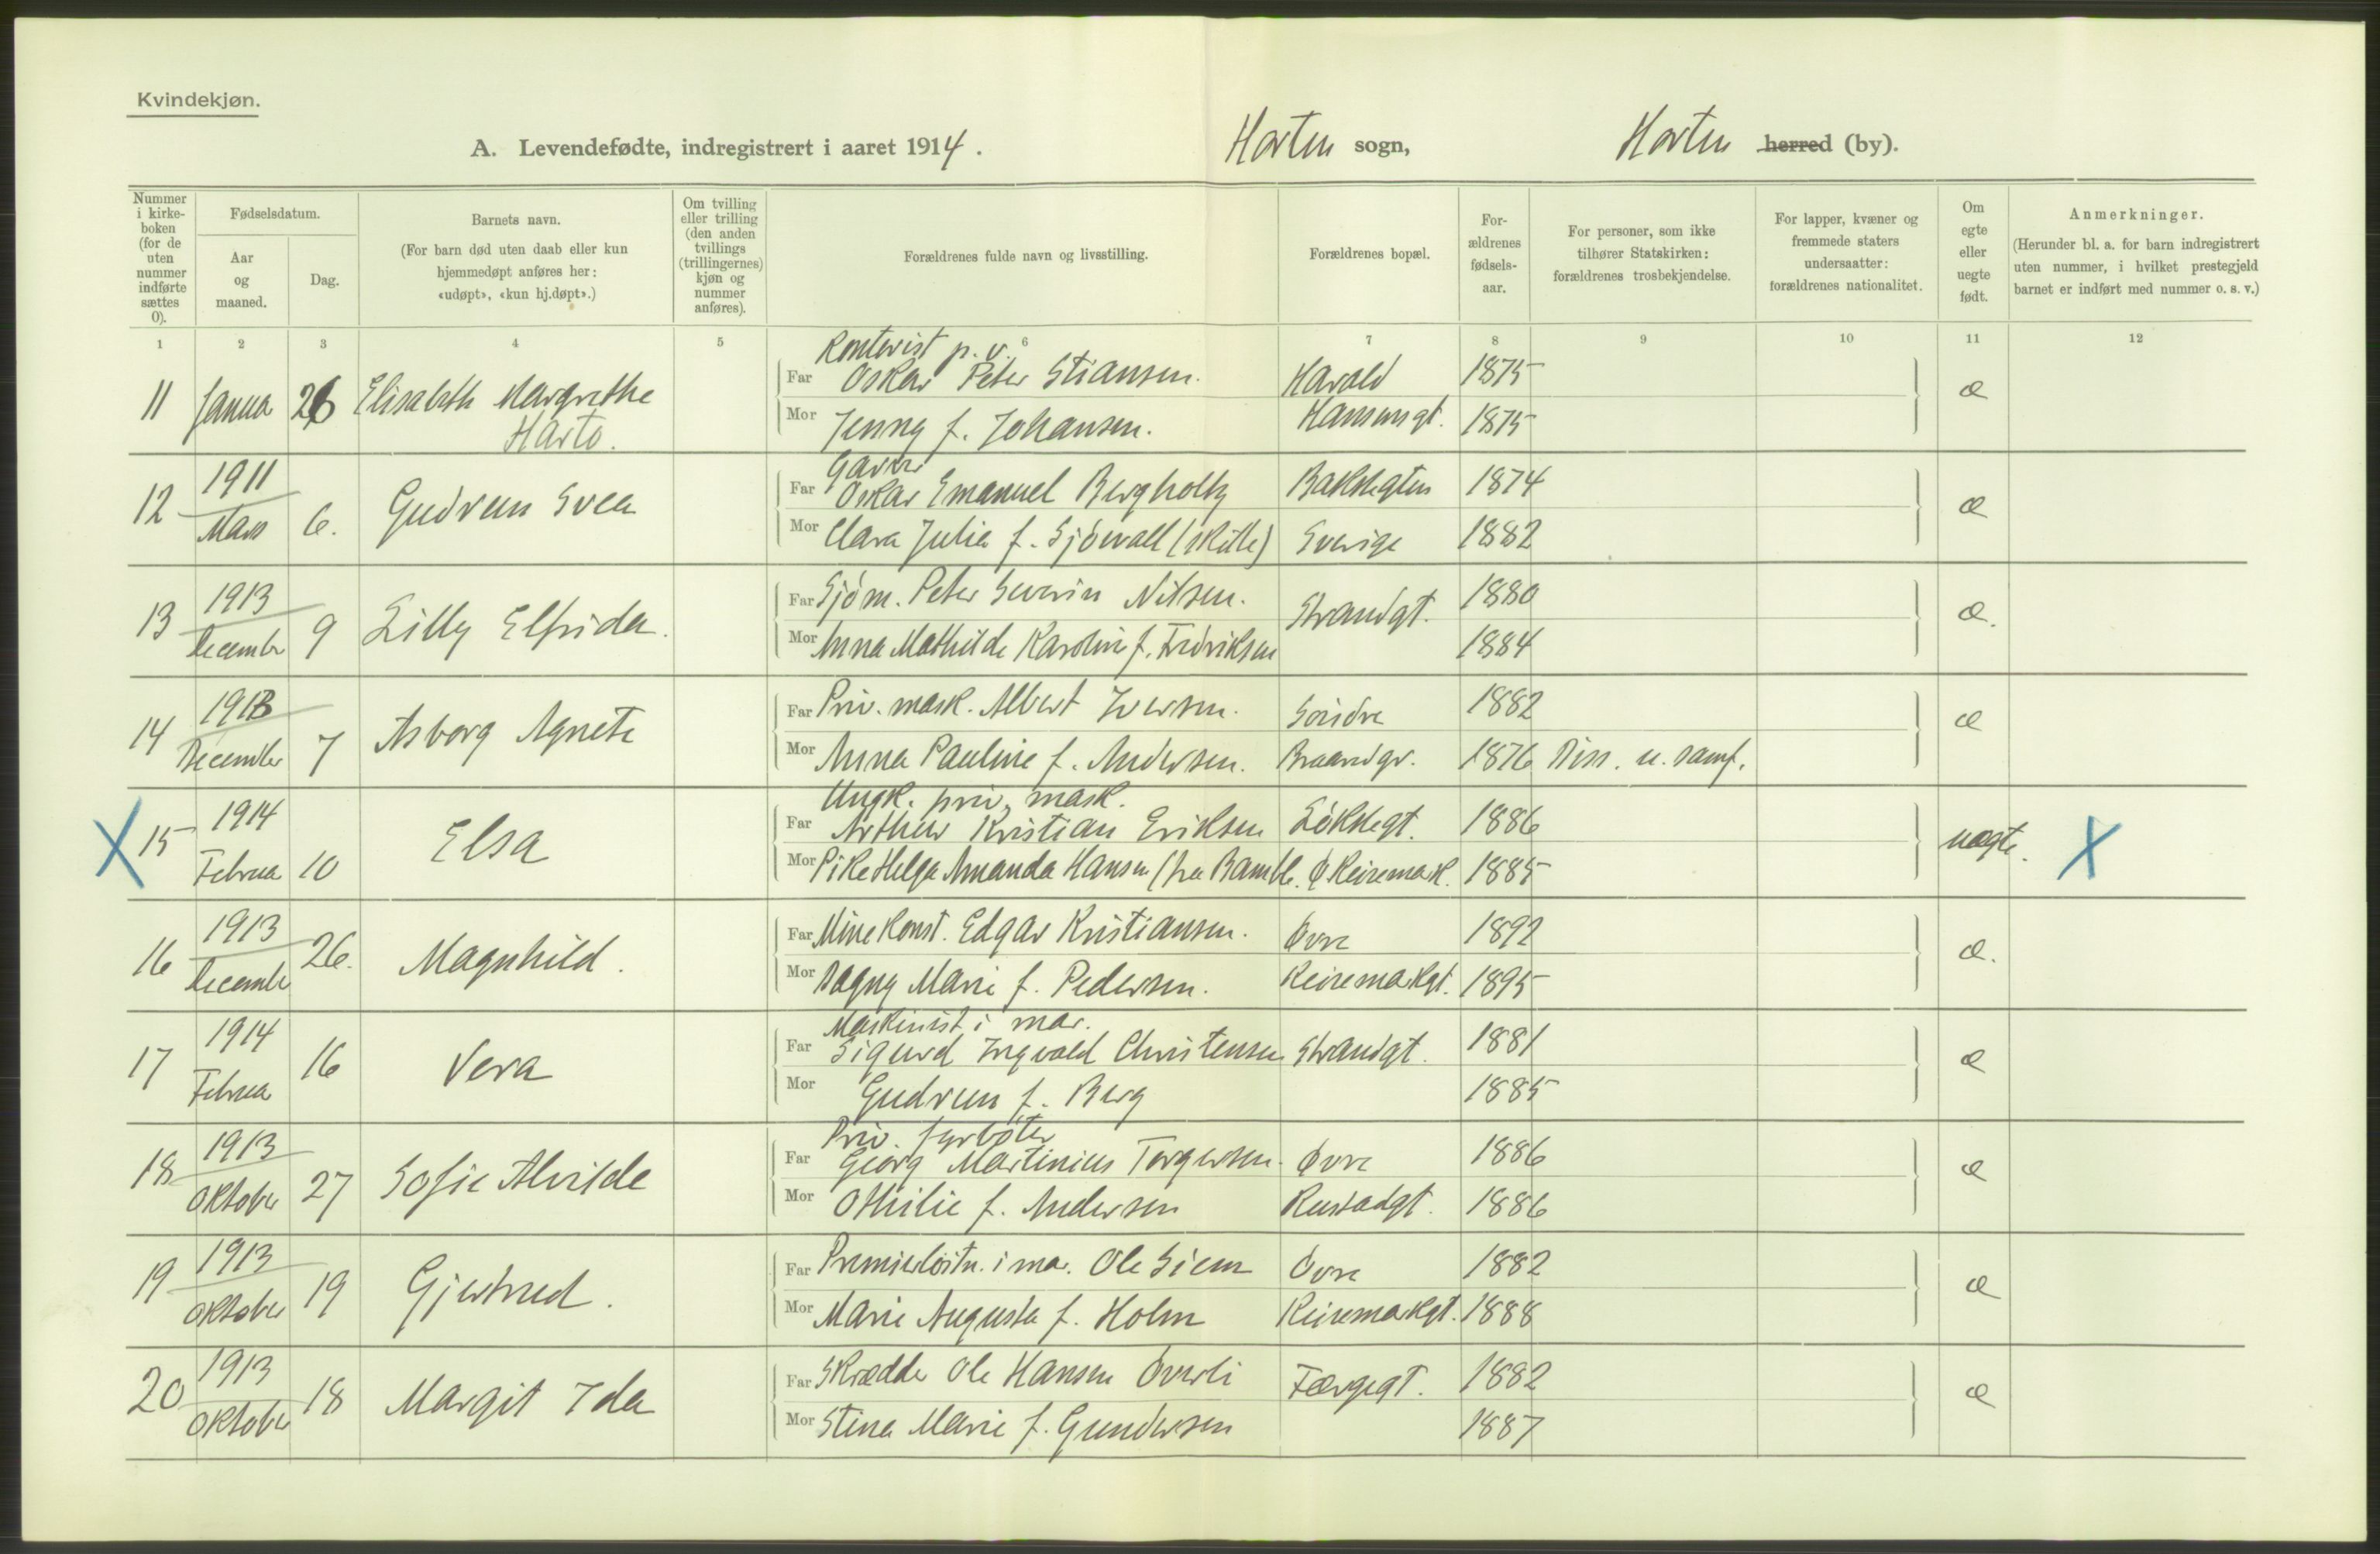 Kvindekjøn.
A. Levendefødte, indregistrert i aaret 1914. Horten sogn, Horten herred (by).
Nummer i kirke-boken (for de uten nummer indførte sættes 0).
Fødselsdatum.
Aar og maaned.
Dag.
Barnets navn.
(For barn død uten daab eller kun hjemmedøpt anføres her: «udøpt», «kun hj.døpt».)
Om tvilling eller trilling (den anden tvillings (trillingernes) kjøn og nummer anføres).
Forældrenes fulde navn og livsstilling.
Forældrenes bopæl.
For-ældrenes fødsels-aar.
For personer, som ikke tilhører Statskirken: forældrenes trosbekjendelse.
For lapper, kvæner og fremmede staters undersaatter: forældrenes nationalitet.
Om egte eller uegte født.
Anmerkninger.
(Herunder bl. a. for barn indregistrert uten nummer, i hvilket prestegjeld barnet er indført med nummer o. s. v.)
1 2 3 4 5 6 7 8 9 10 11 12
Kontorist p. v.
Far Oskar Peter Stiansen. Harald 1875
11 Janua 26 Elisabeth Margrethe æ
Mor Jenny f. Johansen. Hansensgt. 1875
Harto.
1911 Garver
Far Oskar Emanuel Bergholtz Bakkegten 1874
12 Mars 6. Gudrun Svea æ
Mor Clara Julia f. Sjövall (skilte) Sverige 1882
1913 Far Sjöm. Peter Severin Nilsen. Strandgt. 1880
13 December 9 Lilly Elfrida. æ.
Mor Anna Mathilde Karoline f. Fredriksen 1884
1913 Far Priv. mask. Albert Iversen. Söndre 1882
14 December 7 Asborg Agnete æ
Mor Anna Pauline f. Andersen. Braarudgt. 1876 Diss. u. samf.
Ungk. priv. mask.
1914 Far Arthur Kristian Eriksen Lökkegt. 1886
X 15 Februa 10 Elsa uegte. X
Mor Pike Helga Amanda Hansen (fra Bamble. Ø Keisemark. 1885
1913 Far Minekonst. Edgar Kristiansen. Övre 1892
16 December 26. Magnhild. æ.
Mor Dagny Marie f. Pedersen. Keisemarkgt. 1895
Maskinist i mar.
1914 Far Sigurd Ingvald Christensen Strandgt. 1881
17 Februa 16 Vera æ
Mor Gudrun f. Berg 1885
Priv. fyrböter
1913 Far Georg Martinius Torgersen. Övre 1886
18 Oktober 27 Sofie Alvilde æ
Mor Othilie f. Andersen Rustadgt. 1886
1913 Far Premierlöitn. i mar. Ole Siem Övre 1882
19 Oktober 19 Gjertrud. æ
Mor Marie Augusta f. Holm Keisemarkgt. 1888
1913 Far Skrædder Ole Hansen Överli Færgegt. 1882
20 Oktober 18 Margit Ida æ
Mor Stina Marie f. Gundersen 1887